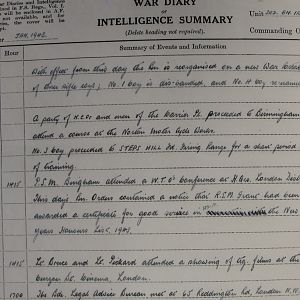 WAR DIARY
OR
INTELLIGENCE SUMMARY
(Delete heading not required).
Commanding O
JAN. 1942.
Hour
Summary of Events and Information
With effect from this day this Bn is reorganised on a new War
of three rifle coys; No. 1 coy is disbanded, and No. 4 coy
A party of N.C.Os and men of the Carrier Pl. proceeded to Birmingham
attend a course at the Norton Motor Cycle Works.
No. 3 coy proceeded to STEPS HILL Fd. Firing Range for a short period
of training.
1415
P.S.M. Bingham attended a W.T.O's conference at H.Qrs. London Dist
This days Bn. Orders contained a notice that R.S.M. Grant had been
awarded a certificate for good service in the New
Years Honours List, 1942.
1415
Lt. Bruce and Lt. Pickard attended a showing of trg. films at the
Curzon St. Cinema, London.
1700
The Bde. Legal Advice Bureau met at 65 Reddington Rd, London N.W.